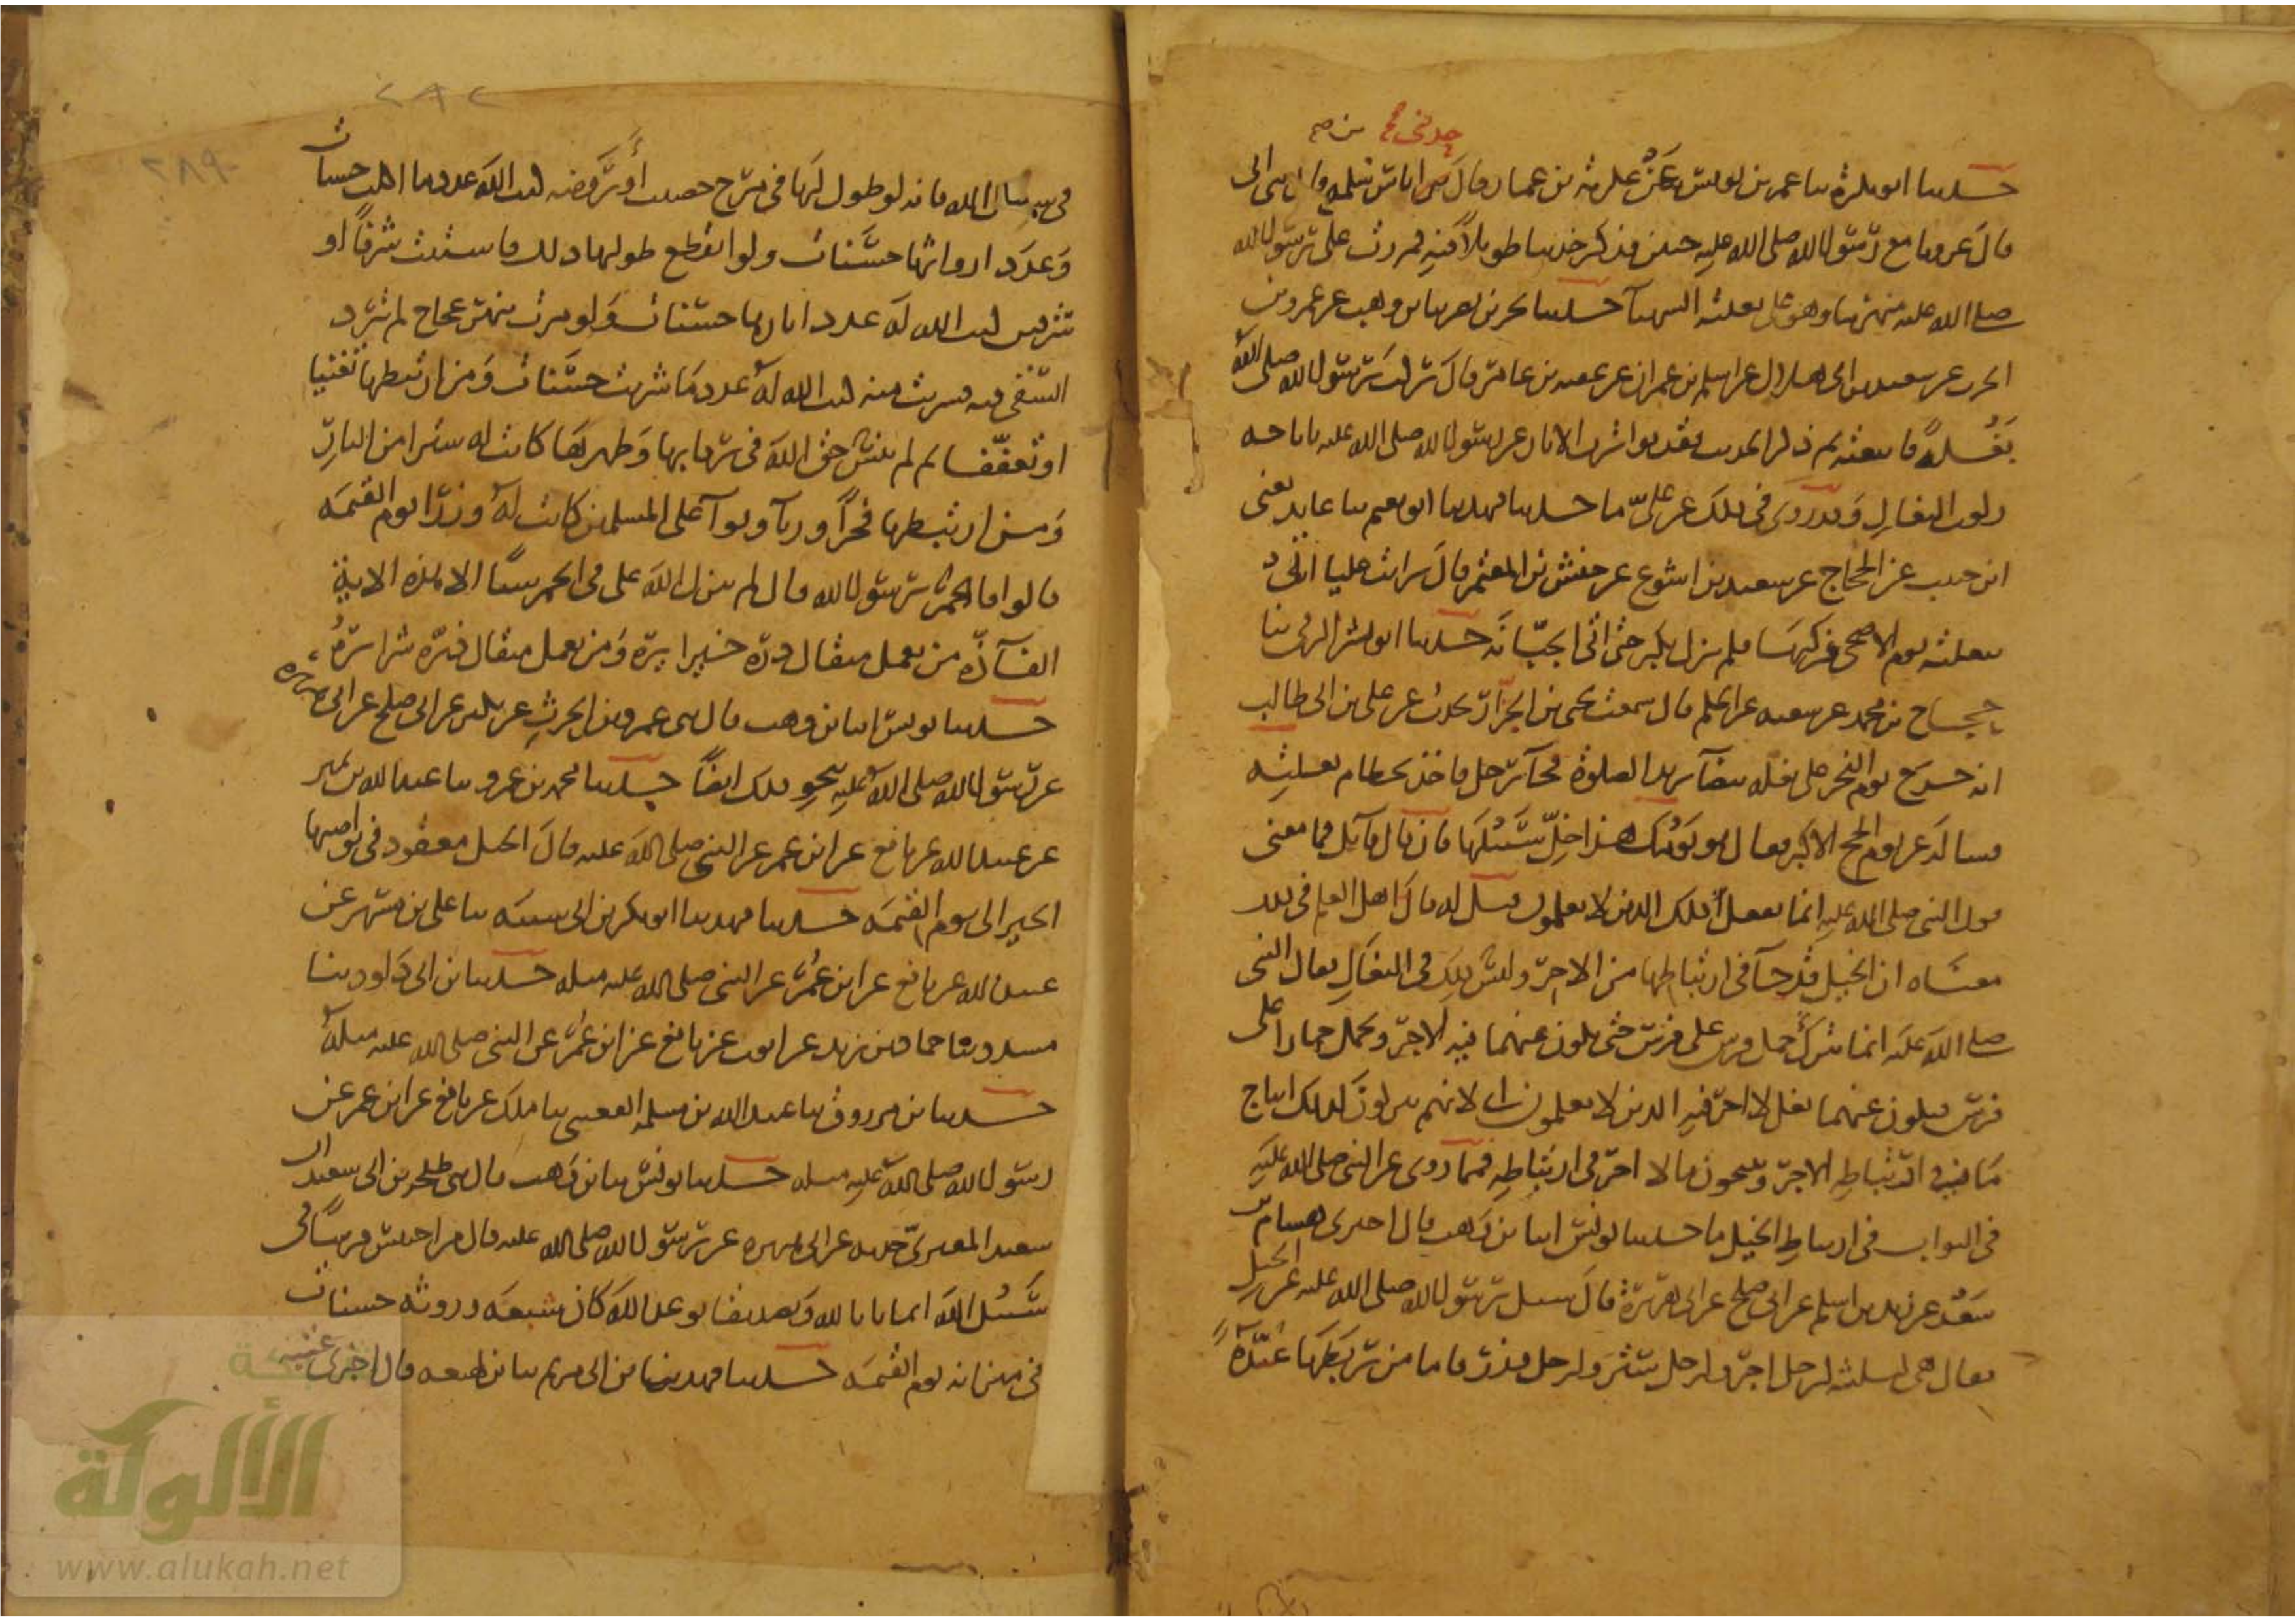 حدثنى صح
من صح
حدثنا ابو بكرة ثنا عمر بن يونس عن عكرمة بن عمار قال ثنى اياس بن سلمة قال ثنى ابى
قال غزونا مع رسول الله صلى الله عليه حنين فذكر حديثا طويلا فيه فمررت على رسول الله
صلى الله عليه منهزما وهو على بغلته الشهبآ حدثنا بحر بن نصر ثنا بن وهب عن عمرو بن
الحرث عن سعيد بن ابى هلال عن اسلم بن عمران عن عقبة بن عامر قال ركب رسول الله صلى الله
بغلة فاتبعته ثم ذكر الحديث فقد تواترت الاثار عن رسول الله صلى الله عليه باباحة
ركوب البغال وقد روى فى ذلك عن على ما حدثنا فهد ثنا ابو نعيم ثنا عايذ يعنى
ابن حبيب عن الحجاج عن سعيد بن اشوع عن حنش بن المعتمر قال رايت عليا اتى
ببغلته يوم الاضحى فركبها فلم يزل يكبر حتى اتى الجبانة حدثنا ابو بشر الرقى ثنا
حجاج بن محمد عن شعبة عن الحكم قال سمعت يحيى بن الجزار يحدث عن على بن ابى طالب
انه خرج يوم النحر على بغلة بيضآ يريد الصلوة فجآ رجل فاخذ بخطام بغلته
فساله عن يوم الحج الاكبر فقال هو يومك هذا خل سبيلها فان قال قآيل فما معنى
قول النبى صلى الله عليه انما يفعل ذلك الذين لا يعلمون قيل له قال اهل العلم فى ذلك
معناه ان الخيل قد جآ فى ارتباطها من الاجر وليس ذلك فى البغال فقال النبى
صلى الله عليه انما ترك حمل فرس على فرس حتى يكون عنهما فيه الاجر ويحمل حمارا على
فرس فيكون عنهما بغل لا اجر فيه الذين لا يعلمون اى لانهم يتركون بذلك انتاج
ما فى ارتباطه الاجر وينتجون ما لا اجر فى ارتباطه فمما روى عن النبى صلى الله عليه
فى الثواب فى ارتباط الخيل ما حدثنا يونس انبا بن وهب قال اخبرنى هشام بن
سعد عن زيد بن اسلم عن ابى صلح عن ابى هريرة قال سيل رسول الله صلى الله عليه عن الخيل
فقال هى لثلثة لرجل اجر ولرجل ستر ولرجل وزر فاما من ربطها عدة
٢٨٢
٢٨٩
فى سبيل الله فانه لو طول لها فى مرج خصيب او روضة كتب الله عدد ما اكلت حسنات
وعدد ارواثها حسنات ولو انقطع طولها ذلك فاستنت شرفا او
شرفين كتب الله له عدد اثارها حسنات ولو مرت بنهر عجاج لم يرد
السقى فيه فشربت منه كتب الله له عدد ما شربت حسنات ومن ارتبطها تغنيا
او تعففا ثم لم ينس حق الله فى رقابها وظهورها كانت له سترا من النار
ومن ارتبطها فخرا وريآ ونوآ على المسلمين كانت له وزرا يوم القيمة
قالوا فالحمر يا رسول الله قال لم ينزل الله على فى الحمر شيا الا هذه الاية
الفآذة من يعمل مثقال ذرة خيرا يره ومن يعمل مثقال ذرة شرا يره
حدثنا يونس انبا بن وهب قال ثنى عمرو بن الحرث عن بكير عن ابى صلح عن ابى هريرة
عن رسول الله صلى الله عليه بنحو ذلك ايضا حدثنا محمد بن عمرو ثنا عبد الله بن نمير
عن عبيد الله عن نافع عن ابن عمر عن النبى صلى الله عليه قال الخيل معقود فى نواصيها
الخير الى يوم القيمة حدثنا فهد ثنا ابو بكر بن ابى شيبة ثنا على بن مسهر عن
عبيد الله عن نافع عن ابن عمر عن النبى صلى الله عليه مثله حدثنا بن ابى داود ثنا
مسدد ثنا حماد بن زيد عن ايوب عن نافع عن ابن عمر عن النبى صلى الله عليه مثله
حدثنا بن مرزوق ثنا عبد الله بن مسلمة القعنبى ثنا ملك عن نافع عن ابن عمر عن
رسول الله صلى الله عليه مثله حدثنا يونس ثنا بن وهب قال ثنى طلحة بن ابى سعيد ان
سعيد المقبرى حدثه عن ابى هريرة عن رسول الله صلى الله عليه قال من احتبس فرسا فى
سبيل الله ايمانا بالله وتصديقا بوعد الله كان شبعه وروثه حسنات
فى ميزانه يوم القيمة حدثنا فهد ثنا بن ابى مريم ثنا بن لهيعة قال اخبرنى عتبة
الألوكة
www.alukah.net